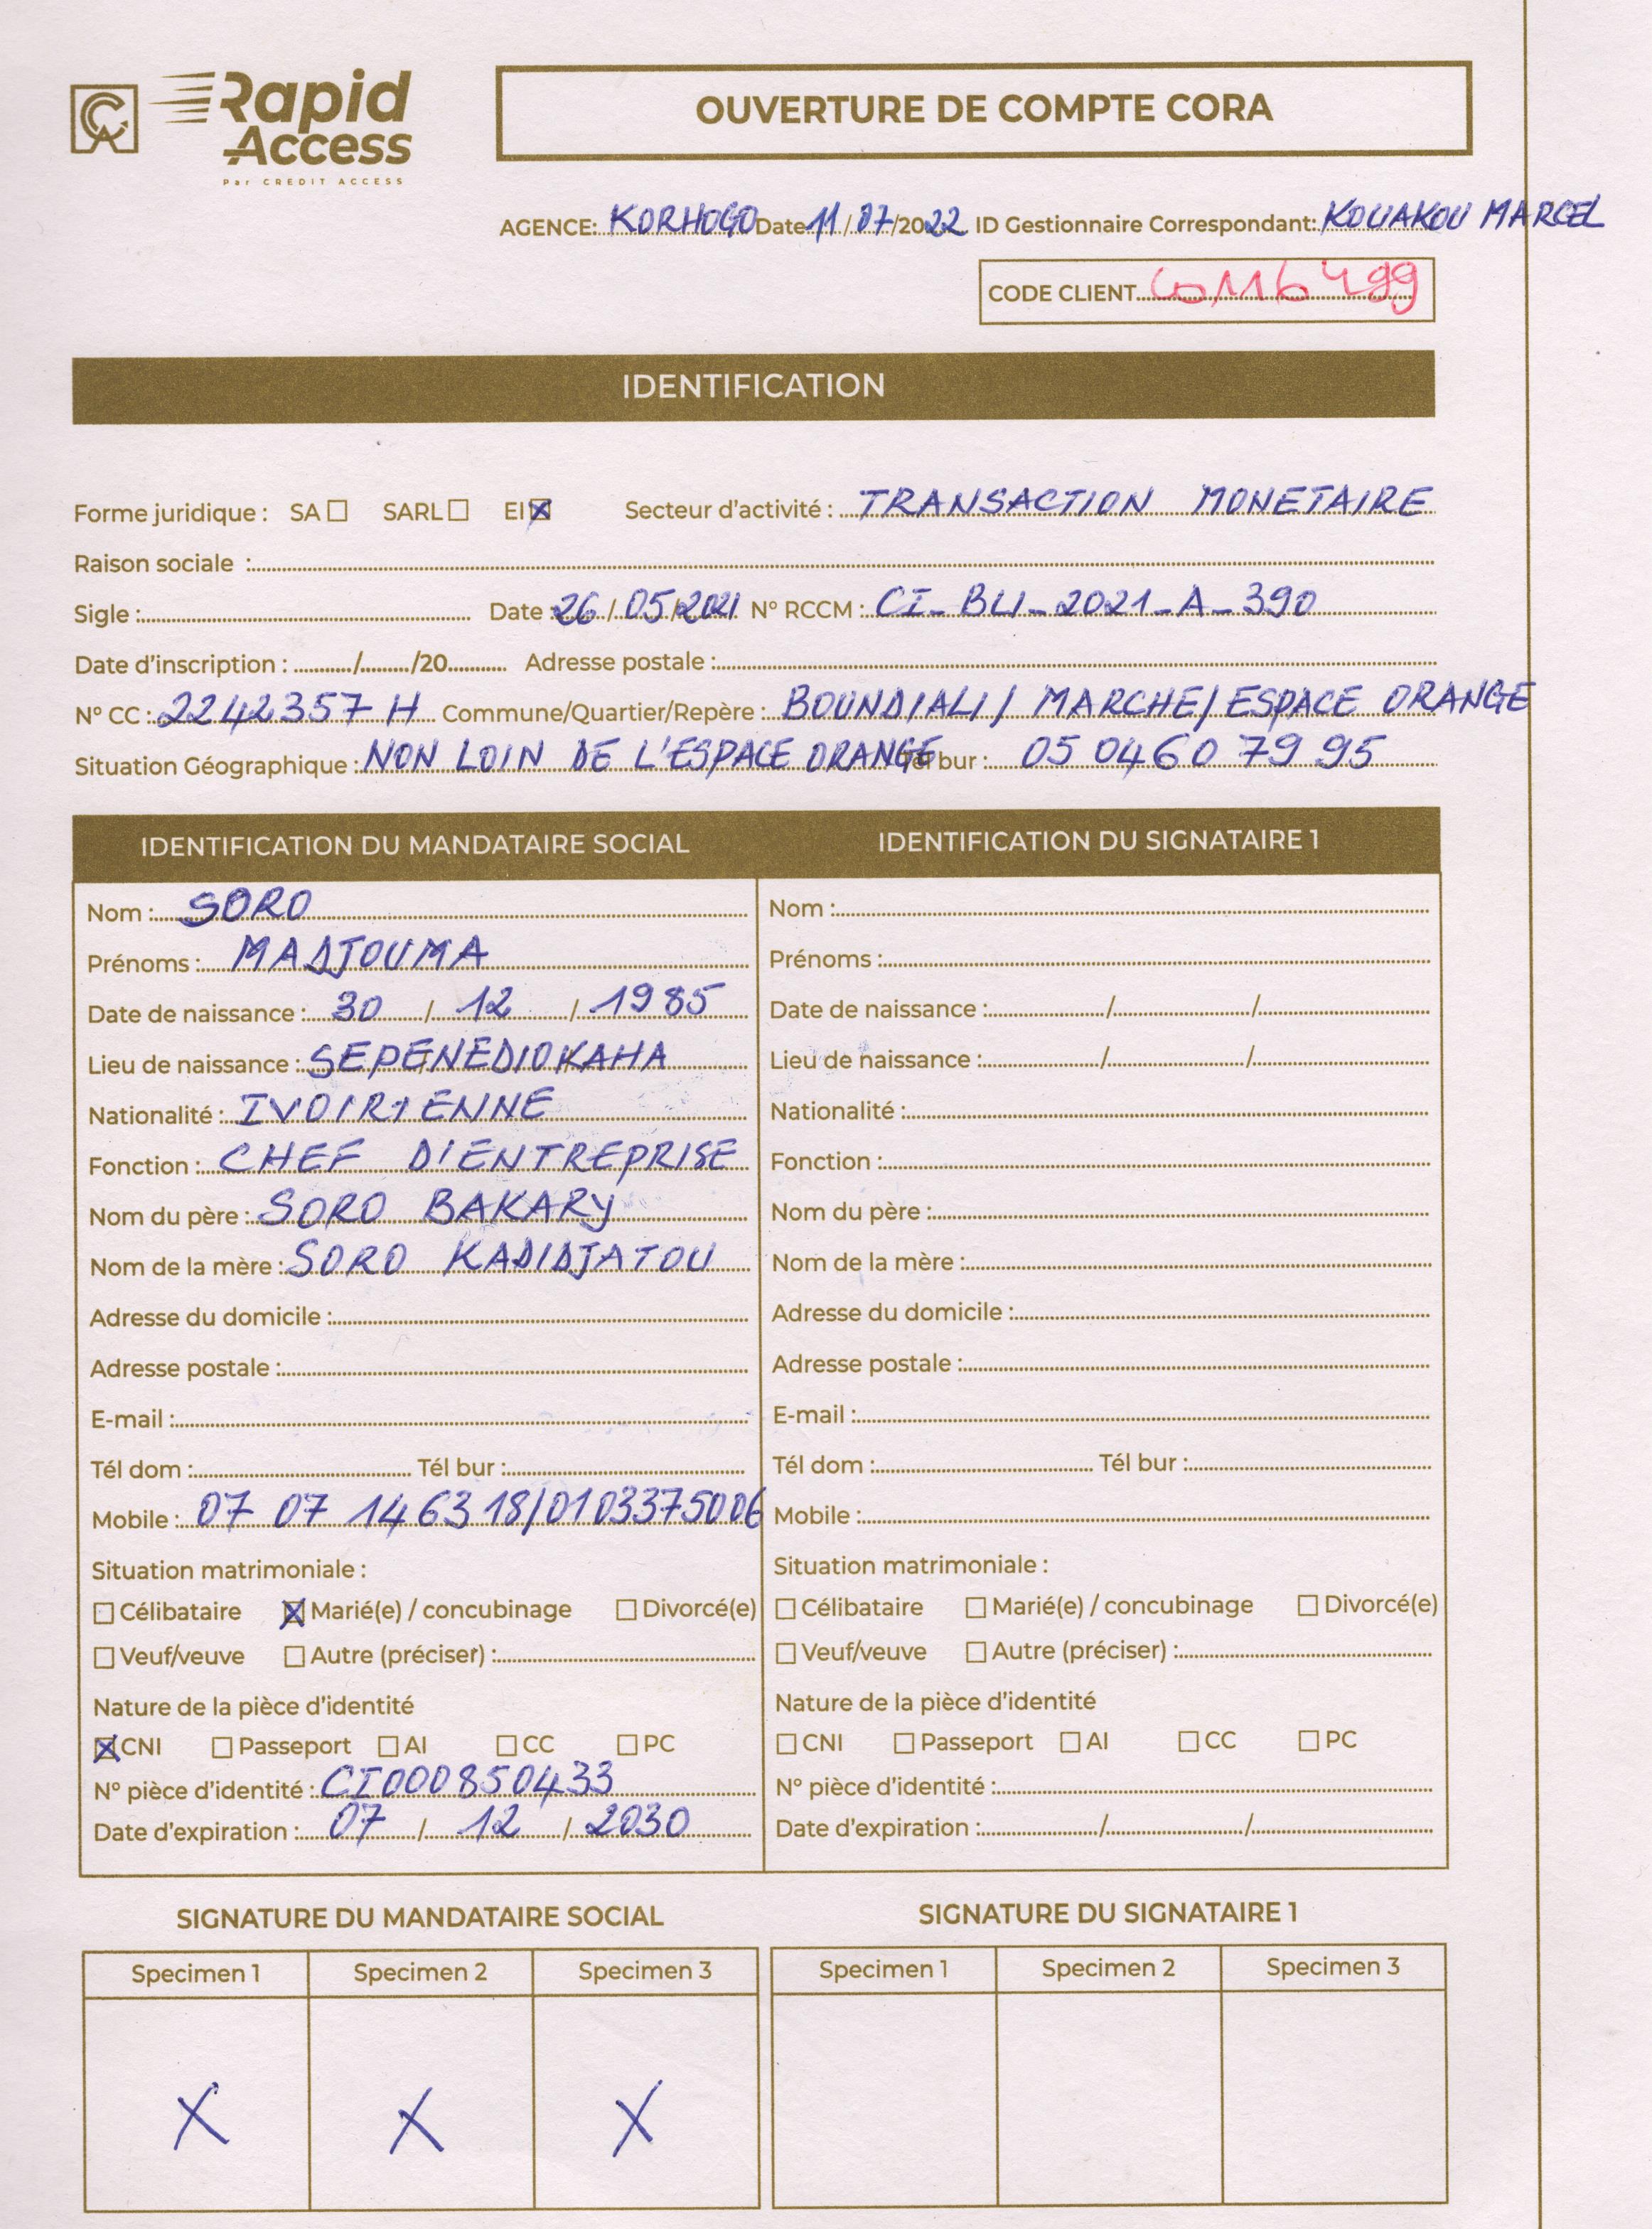 CA Rapid Access
Par CREDIT ACCESS
OUVERTURE DE COMPTE CORA
AGENCE: KORHOGO Date 11 / 07 /2022 ID Gestionnaire Correspondant: KOUAKOU MARCEL
CODE CLIENT
IDENTIFICATION
Forme juridique : SA ☐ SARL ☐ EI ☒ Secteur d'activité : TRANSACTION MONETAIRE
Raison sociale :
Sigle : Date : 26 / 05 / 2021 N° RCCM : CI_BLI_2021_A_390
Date d'inscription : / /20 Adresse postale :
N° CC : 2242357 H Commune/Quartier/Repère : BOUNDIALI / MARCHE / ESPACE ORANGE
Situation Géographique : NON LOIN DE L'ESPACE ORANGE Tél bur : 05 04 60 79 95
IDENTIFICATION DU MANDATAIRE SOCIAL
Nom : SORO
Prénoms : MADJOUMA
Date de naissance : 30 / 12 / 1985
Lieu de naissance : SEPENEDIOKAHA
Nationalité : IVOIRIENNE
Fonction : CHEF D'ENTREPRISE
Nom du père : SORO BAKARY
Nom de la mère : SORO KADIDJATOU
Adresse du domicile :
Adresse postale :
E-mail :
Tél dom : Tél bur :
Mobile : 07 07 14 63 18/0103375006
Situation matrimoniale :
☐ Célibataire ☒ Marié(e) / concubinage ☐ Divorcé(e)
☐ Veuf/veuve ☐ Autre (préciser) :
Nature de la pièce d'identité
☒ CNI ☐ Passeport ☐ AI ☐ CC ☐ PC
N° pièce d'identité : CI000850433
Date d'expiration : 07 / 12 / 2030
IDENTIFICATION DU SIGNATAIRE 1
Nom :
Prénoms :
Date de naissance : / /
Lieu de naissance : / /
Nationalité :
Fonction :
Nom du père :
Nom de la mère :
Adresse du domicile :
Adresse postale :
E-mail :
Tél dom : Tél bur :
Mobile :
Situation matrimoniale :
☐ Célibataire ☐ Marié(e) / concubinage ☐ Divorcé(e)
☐ Veuf/veuve ☐ Autre (préciser) :
Nature de la pièce d'identité
☐ CNI ☐ Passeport ☐ AI ☐ CC ☐ PC
N° pièce d'identité :
Date d'expiration : / /
SIGNATURE DU MANDATAIRE SOCIAL
Specimen 1 Specimen 2 Specimen 3
X X X
SIGNATURE DU SIGNATAIRE 1
Specimen 1 Specimen 2 Specimen 3